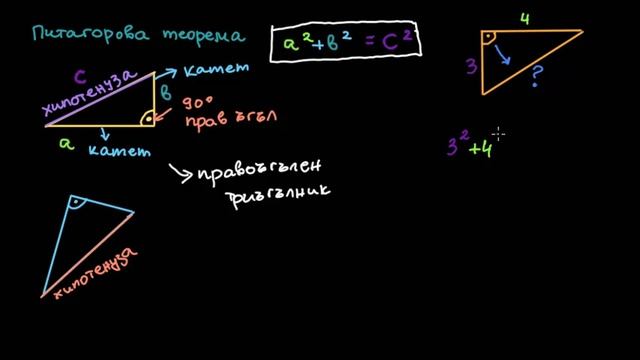 Питагорова теорема
a² + b² = c²
c
хипотенуза
катет
b
90°
прав ъгъл
a
катет
правоъгълен
триъгълник
хипотенуза
4
3
?
3² + 4